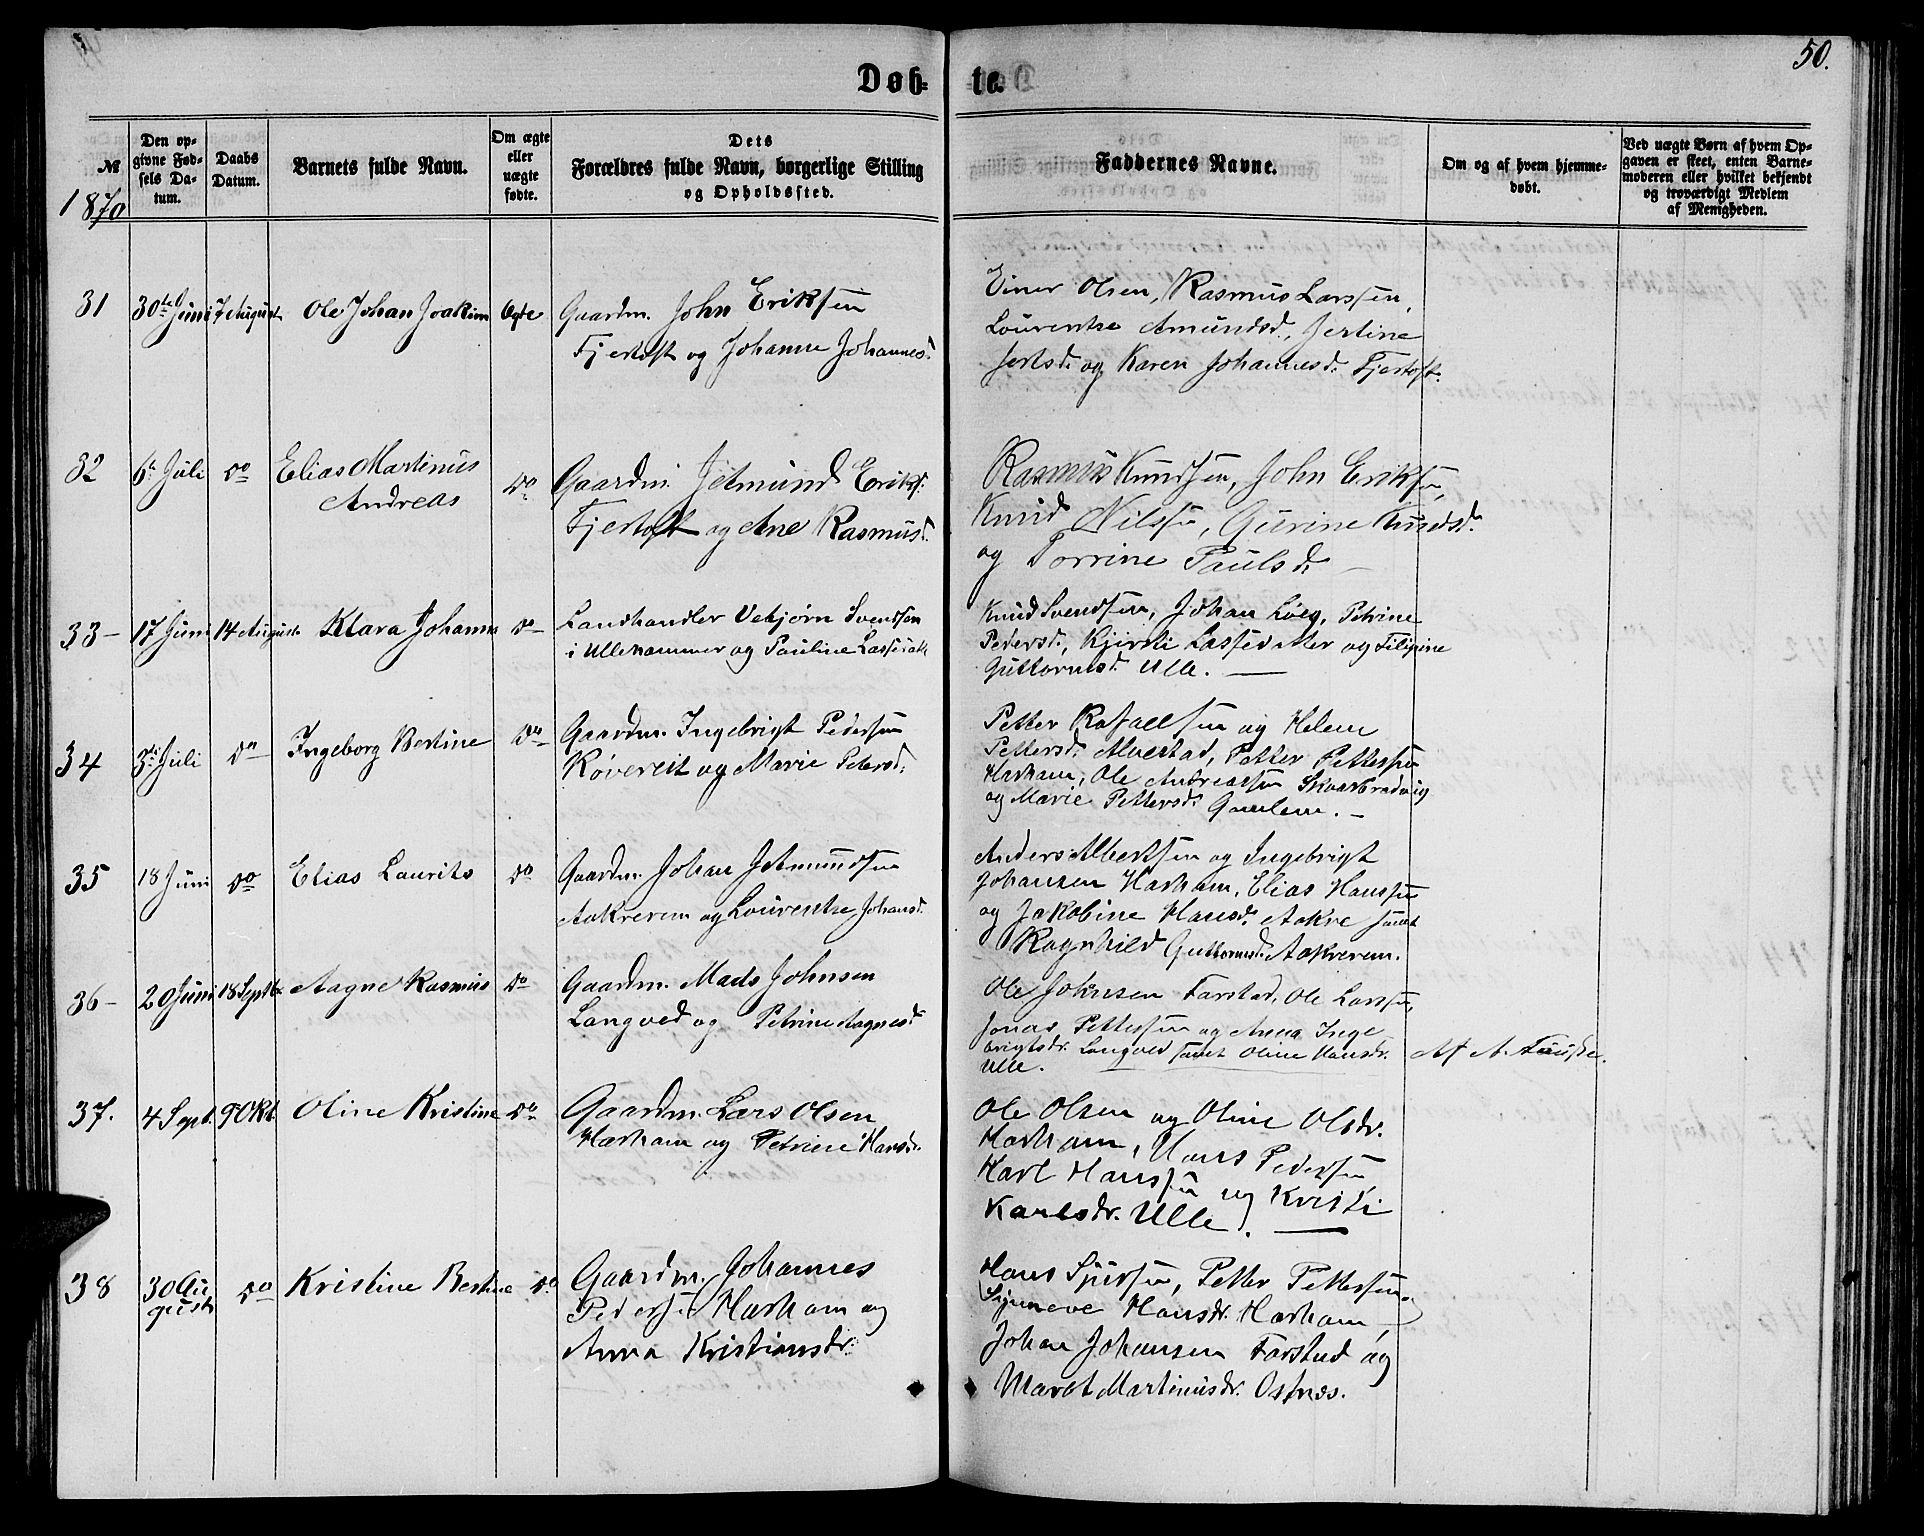 50.
Døb- te.
№
1870
Den op-
givne Fød-
sels Da-
tum.
Daabs
Datum.
Barnets fulde Navn.
Om ægte
eller
uægte
fødte.
Dets
Forældres fulde Navn, borgerlige Stilling
og Opholdssted.
Faddernes Navne.
Om og af hvem hjemme-
døbt.
Ved uægte Børn af hvem Op-
gaven er skeet, enten Barne-
moderen eller hvilket bekjendt
og troværdigt Medlem
af Menigheden.
31 30te Juni 7 August Ole Johan Joakim Egte
Gaardm. John Eriksen
Fjertoft og Johanne Johannesd.
Einer Olsen, Rasmus Larssen,
Lourentse Amundsd., Jertine
Jertsd. og Karen Johannesd. Fjertoft.
32 6te Juli do Elias Martinus
Andreas
do
Gaardm. Jetmund Eriks:
Fjertoft og Ane Rasmusd.
Rasmus Knudsen, John Eriksen,
Knud Nilssen, Gurine Knudsd.
og Torrine Paulsd.
33 17 Juni 14 August Klara Johanna do
Landhandler Vebjørn Svendsen
i Ullehammer og Pauline Lassedatt
Knud Svendsen, Johan Løeg, Petrine
Pedersd., Kjersti Lassedatter og Filipine
Guttormsd. Ulle.
34 3die Juli do Ingeborg Bertine do
Gaardm. Ingebrigt Pedersen
Røvereit og Marie Petersd.
Petter Rafaelsen og Helene
Pettersd. Alvestad, Petter Pettersen
Harham, Ole Andreassen Skaarbradvig
og Marie Pettersd. Gamlem.
35 18 Juni do Elias Laurits do
Gaardm. Johan Jetmundsen
Aakrerem og Lourentse Johansd.
Anders Albertsen og Ingebrigt
Johansen Harham, Elias Hanssen
og Jakobine Hansd. Aakre samt
Ragnhild Guttormsd. Aakrerem.
36 20 Juni 18 Septbr Aagne Rasmus do
Gaardm. Mads Johnsen
Langved og Petrine Aagnesd.
Ole Johnsen Farstad, Ole Larssen,
Jonas Pettersen og Anna Inge
brigtsdr. Langved samt Oline Hansdr.
Ulle.
Af A. Fauske.
37. 4 Sept. 9 Okt. Oline Kristine do
Gaardm. Lars Olsen
Harham og Petrine Hansd.
Ole Olsen og Oline Olsdr.
Harham, Hans Pedersen
Karl Hanssen og Kristi
Karlsdr. Ulle.
38 30 Au
gust
do Kristine Bertine do
Gaardm. Johannes
Pedersen Harham og
Anna Kristiansdr.
Hans Sjursen, Petter Pettersen,
Synneve Hansdr. Harham,
Johan Johansen Farstad og
Maret Martinusdr. Ostnes.